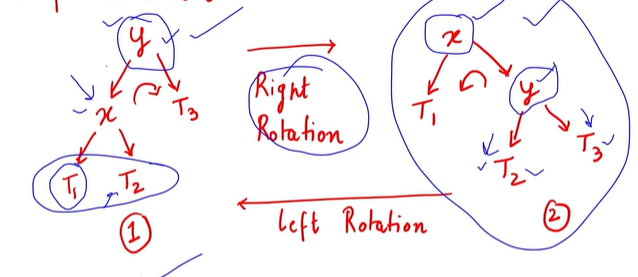 y
x
T3
T1
T2
1
Right
Rotation
left Rotation
x
T1
y
T2
T3
2